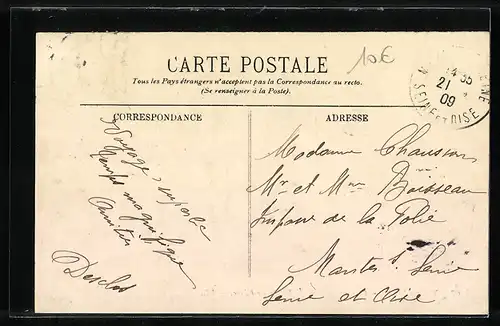 10 €
CARTE POSTALE
Tous les Pays étrangers n'acceptent pas la Correspondance au recto.
(Se renseigner à la Poste).
14 35
21
09
SEINE ET OISE
CORRESPONDANCE
ADRESSE
Voyage superbe
Temps magnifique
Amitiés
Madame Chausson
Mr et Mme Boisseau
Impasse de la Folie
Mantes s. Seine
Seine et Oise